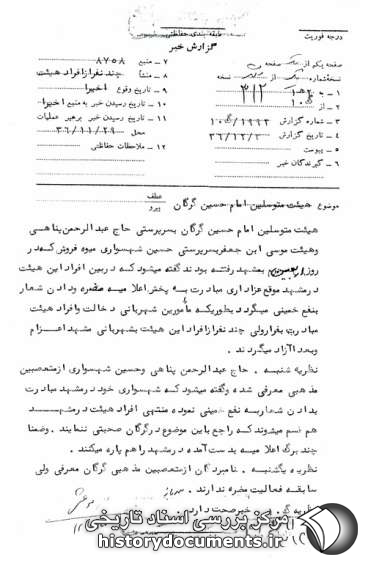 درجه فوریت
طبقه‌بندی حفاظتی
گزارش خبر
صفحه یکم از صفحه
نسخه شماره از نسخه
۱ - به ۳۱۲
۲ - از
۳ - شماره گزارش
۴ - تاریخ گزارش ۳۶/۱۲/۲
۵ - پیوست
۶ - گیرندگان خبر
۷ - منبع ۸۷۵۸
۸ - منشأ چند نفر از افراد هیئت
۹ - تاریخ وقوع اخیرا
۱۰ - تاریخ رسیدن خبر به منبع اخیرا
۱۱ - تاریخ رسیدن خبر به رهبر عملیات
محل ۳۶/۱۱/۲۹
۱۲ - ملاحظات حفاظتی
موضوع هیئت متوسلین امام حسین گرگان
عطف
پیرو
هیئت متوسلین امام حسین گرگان بسرپرستی حاج عبدالرحمن پناهی
وهیئت موسی ابن جعفر بسرپرستی حسین شهسواری میوه فروش که در
روز بمشهد رفته بودند گفته میشود که در بین افراد این هیئت
در مشهد موقع عزاداری مبادرت به پخش اعلامیه مضره و دادن شعار
بنفع خمینی میگردد بطوریکه مأمورین شهربانی دخالت و افراد هیئت
مبادرت بفرار ولی چند نفر از افراد این هیئت بشهربانی مشهد اعزام
وبعدا آزاد میگردند .
نظریه شنبه . حاج عبدالرحمن پناهی وحسین شهسواری از متعصبین
مذهبی معرفی شده وگفته میشود که شهسواری خود در مشهد مبادرت
بدادن شعار به نفع خمینی نموده منتهی افراد هیئت در مشهد
هم قسم میشوند که راجع باین موضوع در گرگان صحبتی ننمایند . وضمنا
چند برگ اعلامیه بدست آمده در مشهد را هم پاره میکنند .
نظریه یکشنبه . نامبردگان از متعصبین مذهبی گرگان معرفی ولی
سابقه فعالیت مضره ندارند .
خبر صحت دارد
مرکز بررسی اسناد تاریخی
historydocuments.ir